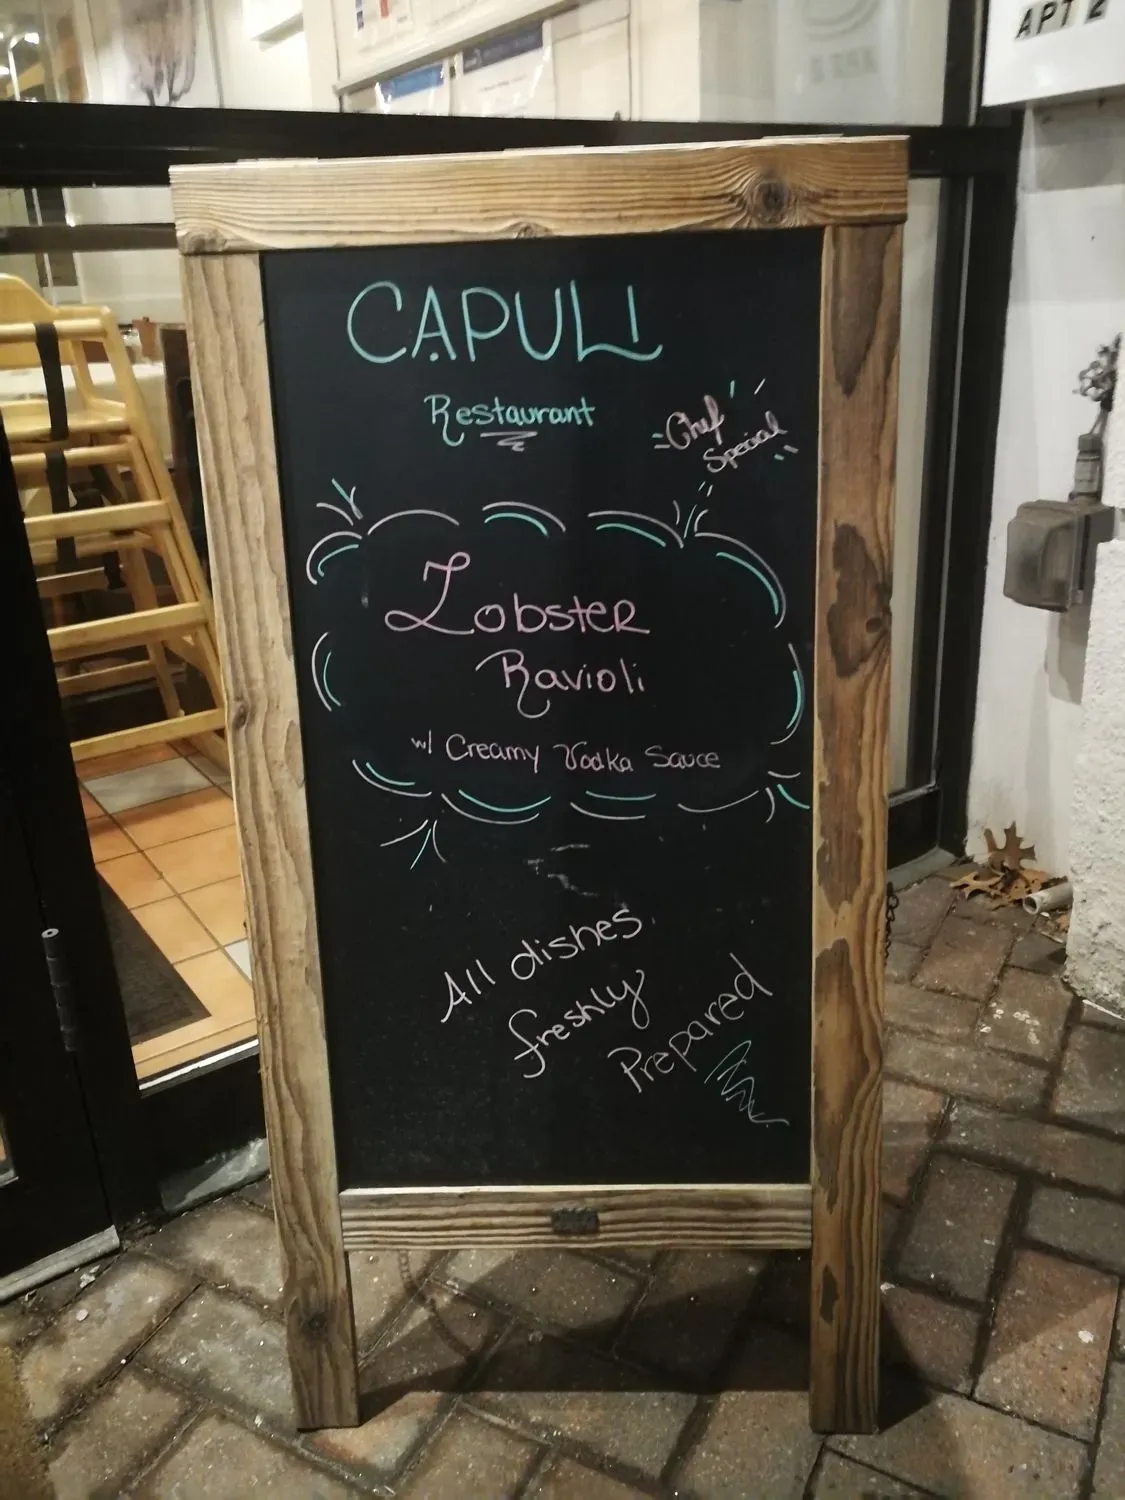 APT 2
CAPULI
Restaurant
Chef
Special
Lobster
Ravioli
w/ Creamy Vodka Sauce
All dishes
freshly
Prepared